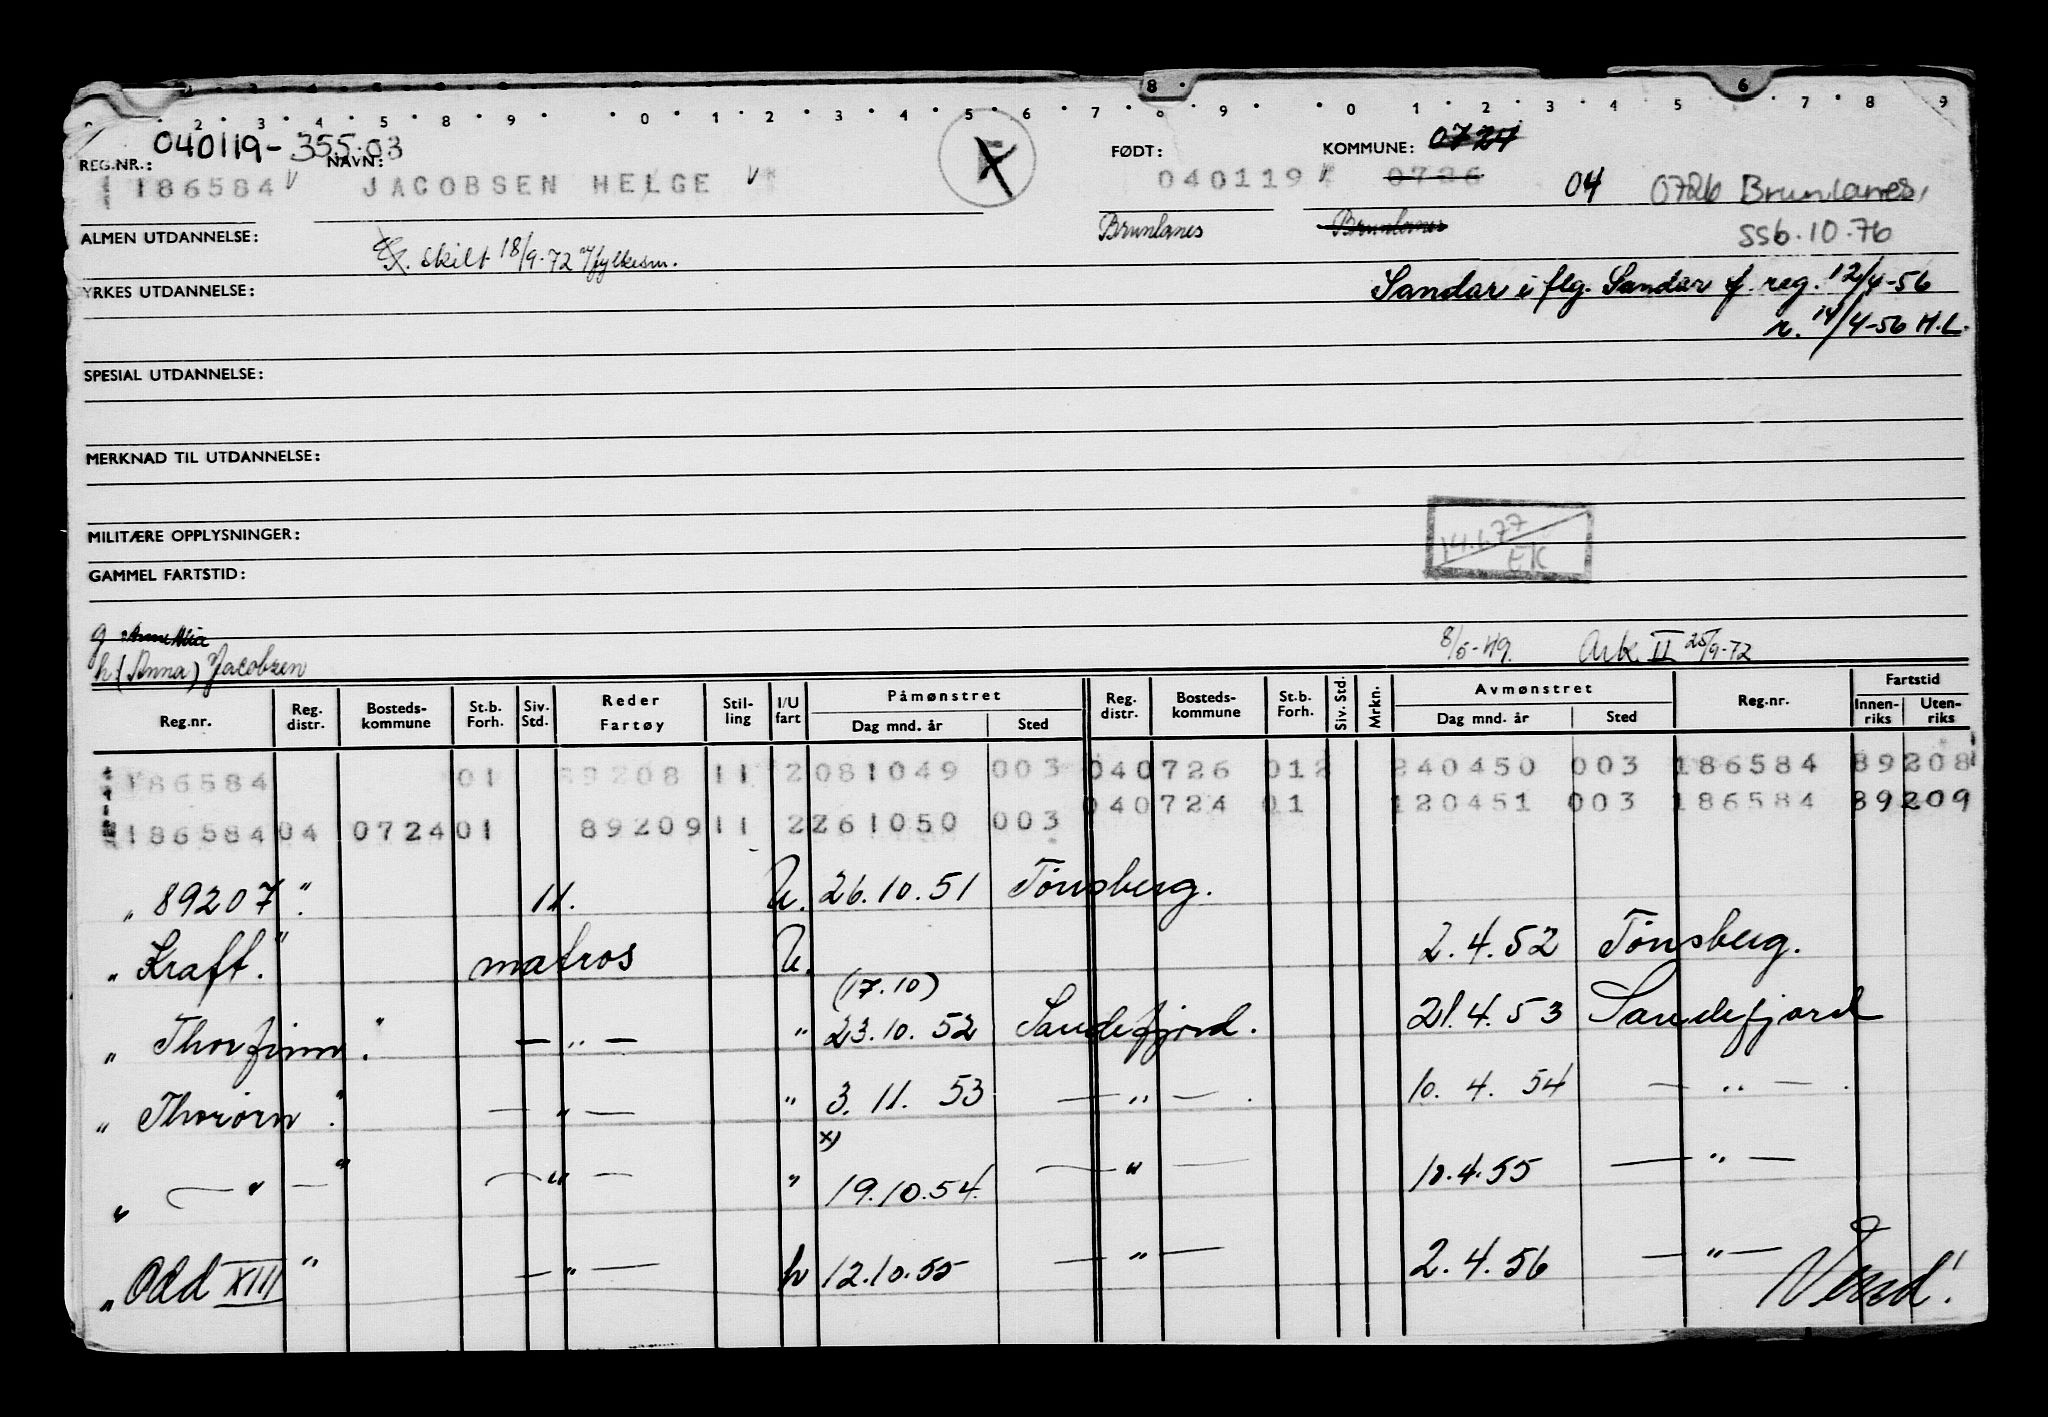 2 3 4 5 8 9 0 1 2 3 4 5 6 7 8 9 0 1 2 3 4 5 6 7 8 9
040119-355.03
REG.NR.: NAVN: FØDT: KOMMUNE: 0724
186584 JACOBSEN HELGE 040119 0726 04 0726 Brunlanes
Brunlanes Brunlanes SSb.10.76
ALMEN UTDANNELSE: skilt 18/9-72 v/fylkesm.
YRKES UTDANNELSE: Sandar i flg. Sandar f. reg. 12/4-56
r. 14/4-56 H.L.
SPESIAL UTDANNELSE:
MERKNAD TIL UTDANNELSE:
MILITÆRE OPPLYSNINGER: 14.1.77
EK
GAMMEL FARTSTID:
g
h (Anna) Jacobsen 8/5-49. Ark. II 25/9-72
Reg.nr. Reg. distr. Bosteds-kommune St.b. Forh. Siv. Std. Reder Fartøy Stil-ling I/U fart Påmønstret Dag mnd. år Sted Reg. distr. Bosteds-kommune St.b. Forh. Siv. Std. Mrkn. Avmønstret Dag mnd. år Sted Reg.nr. Fartstid Innen-riks Uten-riks
186584 01 89208 11 2 081049 003 040726 012 240450 003 186584 89208
040724 01 120451 003 186584 89209
186584 04 0724 01 89209 11 2 261050 003
" 89207 " 11. U. 26.10.51 Tönsberg.
" Kraft. " matros U. 2.4.52 Tönsberg.
(17.10)
" Thorfinn. " — " — " 23.10.52 Sandefjord. 21.4.53 Sandefjord
" Thorörn. " — " — " 3.11.53 — " — . 10.4.54 — " — .
x)
" — " — " — " — " 19.10.54. — " — 10.4.55 — " —
" Odd XIII " — " — h 12.10.55 — " — 2.4.56 — " —
Vend!